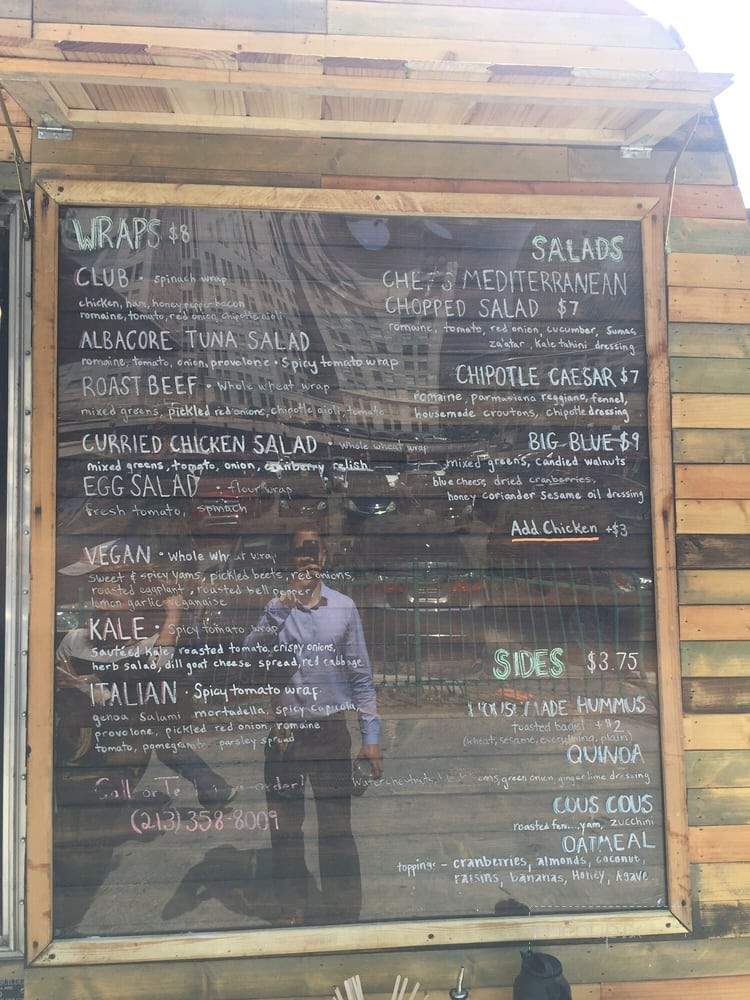 WRAPS $8
CLUB • spinach wrap
chicken, ham, honey pepper bacon
romaine, tomato, red onion, chipotle aioli
ALBACORE TUNA SALAD
romaine, tomato, onion, provolone • Spicy tomato wrap
ROAST BEEF • Whole wheat wrap
mixed greens, pickled red onions, chipotle aioli, tomato
CURRIED CHICKEN SALAD • whole wheat wrap
mixed greens, tomato, onion, cranberry relish
EGG SALAD • flour wrap
fresh tomato, spinach
VEGAN • Whole wheat wrap
sweet & spicy yams, pickled beets, red onions,
roasted eggplant, roasted bell pepper,
lemon garlic veganaise
KALE • Spicy tomato wrap
sautéed kale, roasted tomato, crispy onions,
herb salad, dill goat cheese spread, red cabbage
ITALIAN • Spicy tomato wrap
genoa salami mortadella, spicy capicola,
provolone, pickled red onion, romaine
tomato, pomegranate parsley spread
Call or order!
(213) 358-8009
SALADS
CHEF'S MEDITERRANEAN
CHOPPED SALAD $7
romaine, tomato, red onion, cucumber, sumac,
za'atar, kale tahini dressing
CHIPOTLE CAESAR $7
romaine, parmasiano reggiano, fennel,
housemade croutons, chipotle dressing
BIG BLUE $9
mixed greens, candied walnuts
blue cheese, dried cranberries,
honey coriander sesame oil dressing
Add Chicken +$3
SIDES $3.75
HOUSEMADE HUMMUS
toasted bagel +$2
(wheat, sesame, everything, plain)
QUINOA
Water chestnuts, green onion, ginger lime dressing
COUS COUS
roasted yam, zucchini
OATMEAL
toppings - cranberries, almonds, coconut,
raisins, bananas, Honey, Agave